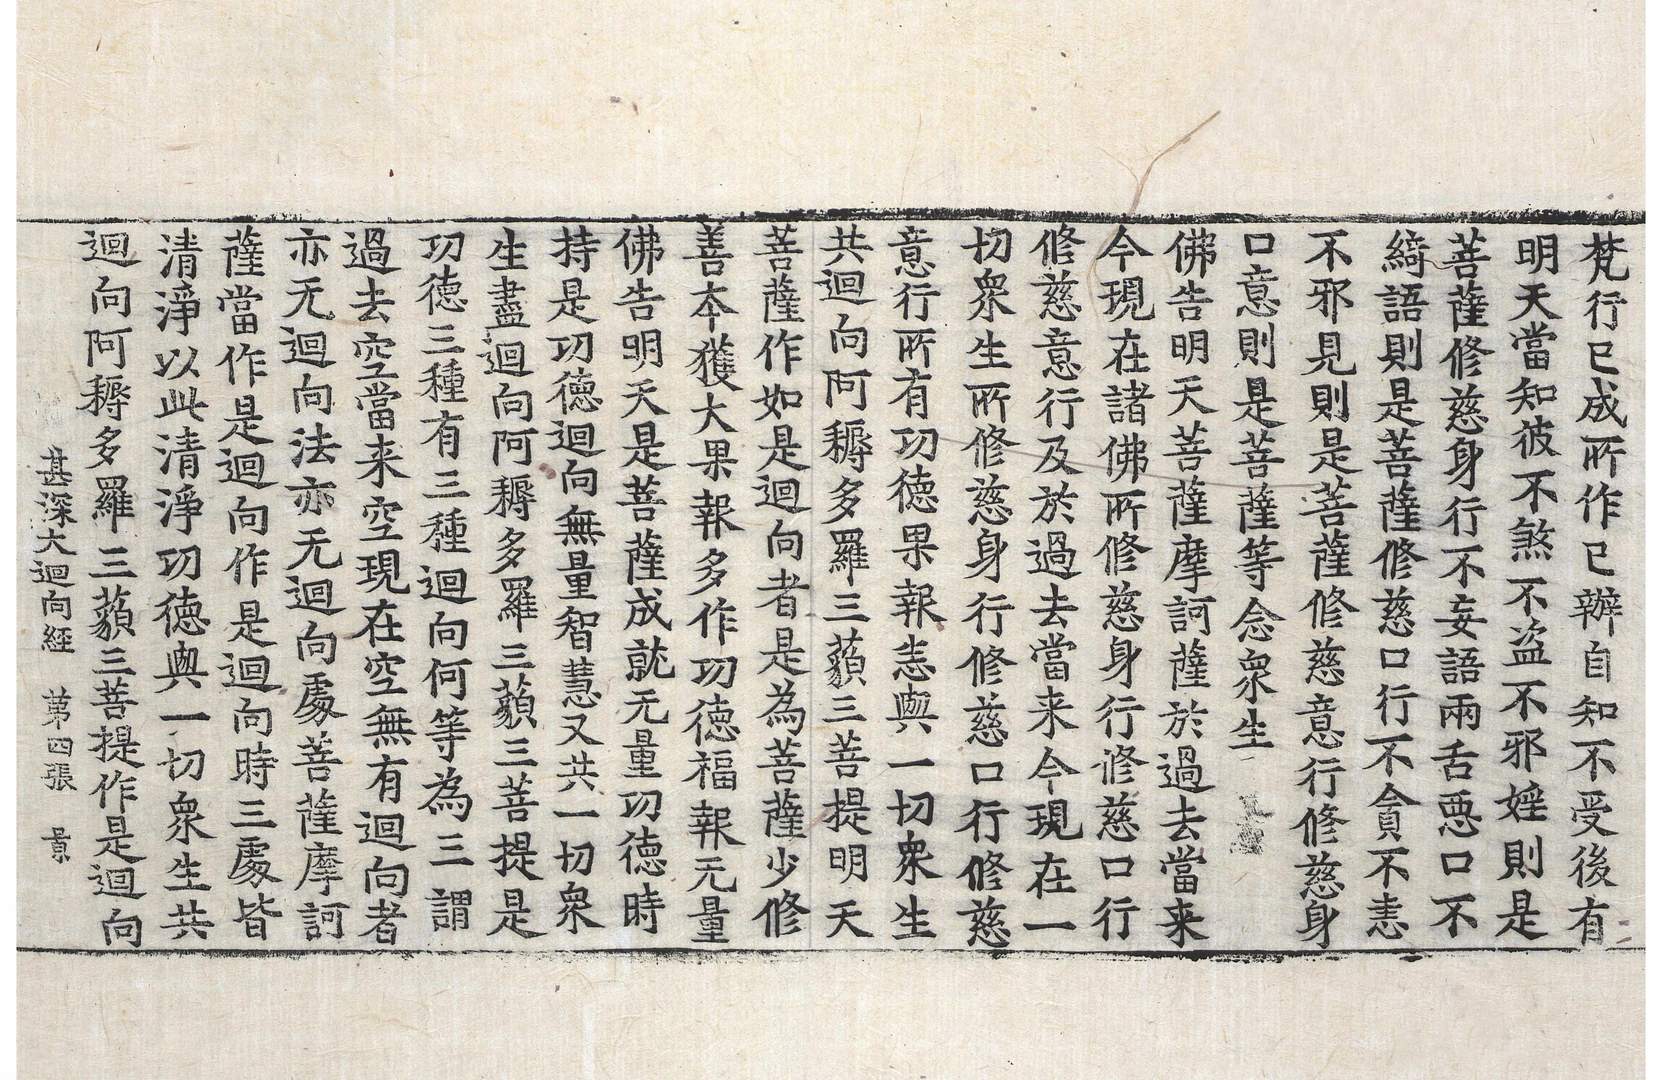 梵行已成所作已辦自知不受後有
明天當知彼不煞不盗不邪婬則是
菩薩修慈身行不妄語兩舌惡口不
綺語則是菩薩修慈口行不貪不恚
不邪見則是菩薩修慈意行修慈身
口意則是菩薩等念衆生
佛告明天菩薩摩訶薩於過去當来
今現在諸佛所修慈身行修慈口行
修慈意行及於過去當来今現在一
切衆生所修慈身行修慈口行修慈
意行所有功德果報悉與一切衆生
共迴向阿耨多羅三藐三菩提明天
菩薩作如是迴向者是為菩薩少修
善本獲大果報多作功德福報无量
佛告明天是菩薩成就无量功德時
持是功德迴向無量智慧又共一切衆
生盡迴向阿耨多羅三藐三菩提是
功德三種有三種迴向何等為三謂
過去空當来空現在空無有迴向者
亦无迴向法亦无迴向處菩薩摩訶
薩當作是迴向作是迴向時三處皆
清淨以此清淨功德與一切衆生共
迴向阿耨多羅三藐三菩提作是迴向
甚深大迴向經 第四張 景